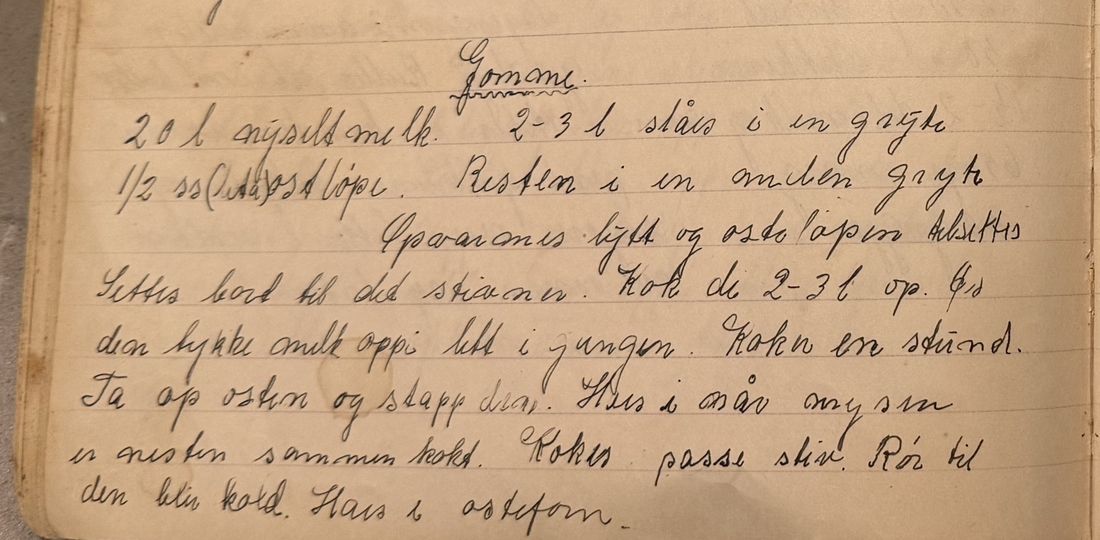 Gomme.
20 l nysilt melk. 2-3 l slåes i en gryte
1/2 ss ostløpe. Resten i en anden gryte
Opvarmes lytt og osteløpen tilsettes
Settes bort til det stivner. Kok de 2-3 l op. Øs
den tykke melk oppi litt i gangen. Koker en stund.
Ta op osten og stapp den. Haes i når mysen
er nesten sammen kokt. Kokes passe stiv. Rør til
den blir kold. Haes i osteform.